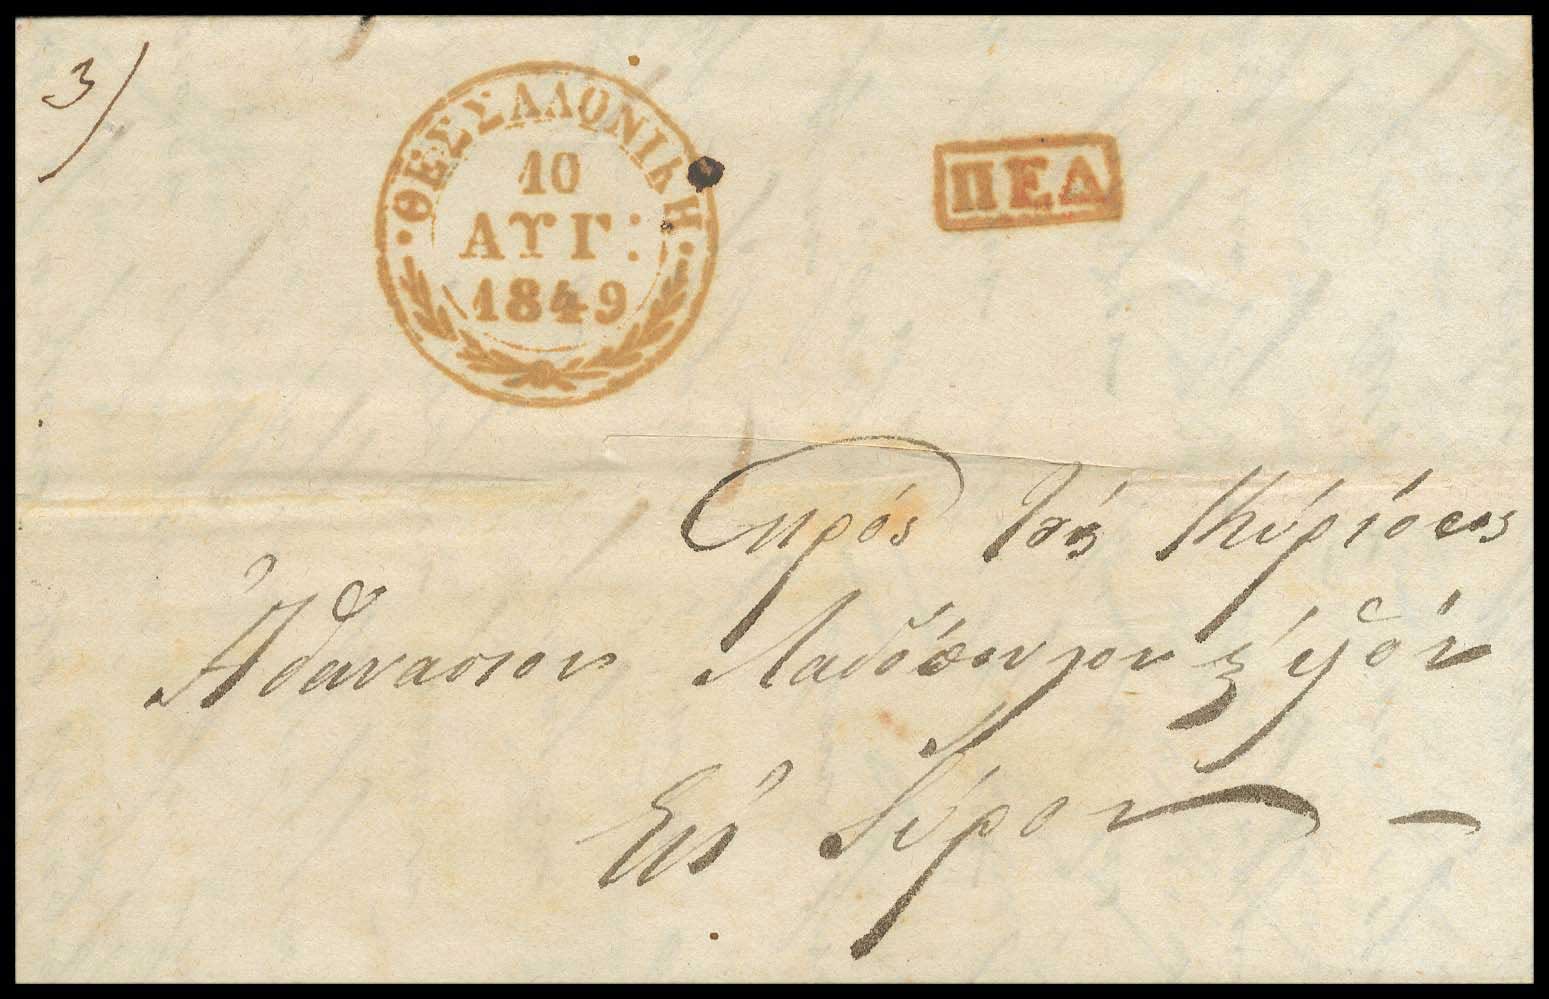 3)
ΘΕΣΣΑΛΟΝΙΚΗ
10
ΑΥΓ:
1849
ΠΕΔ
Πρὸς τοὺς Κυρίους
Ἀθανάσιον
Εἰς Σύρον